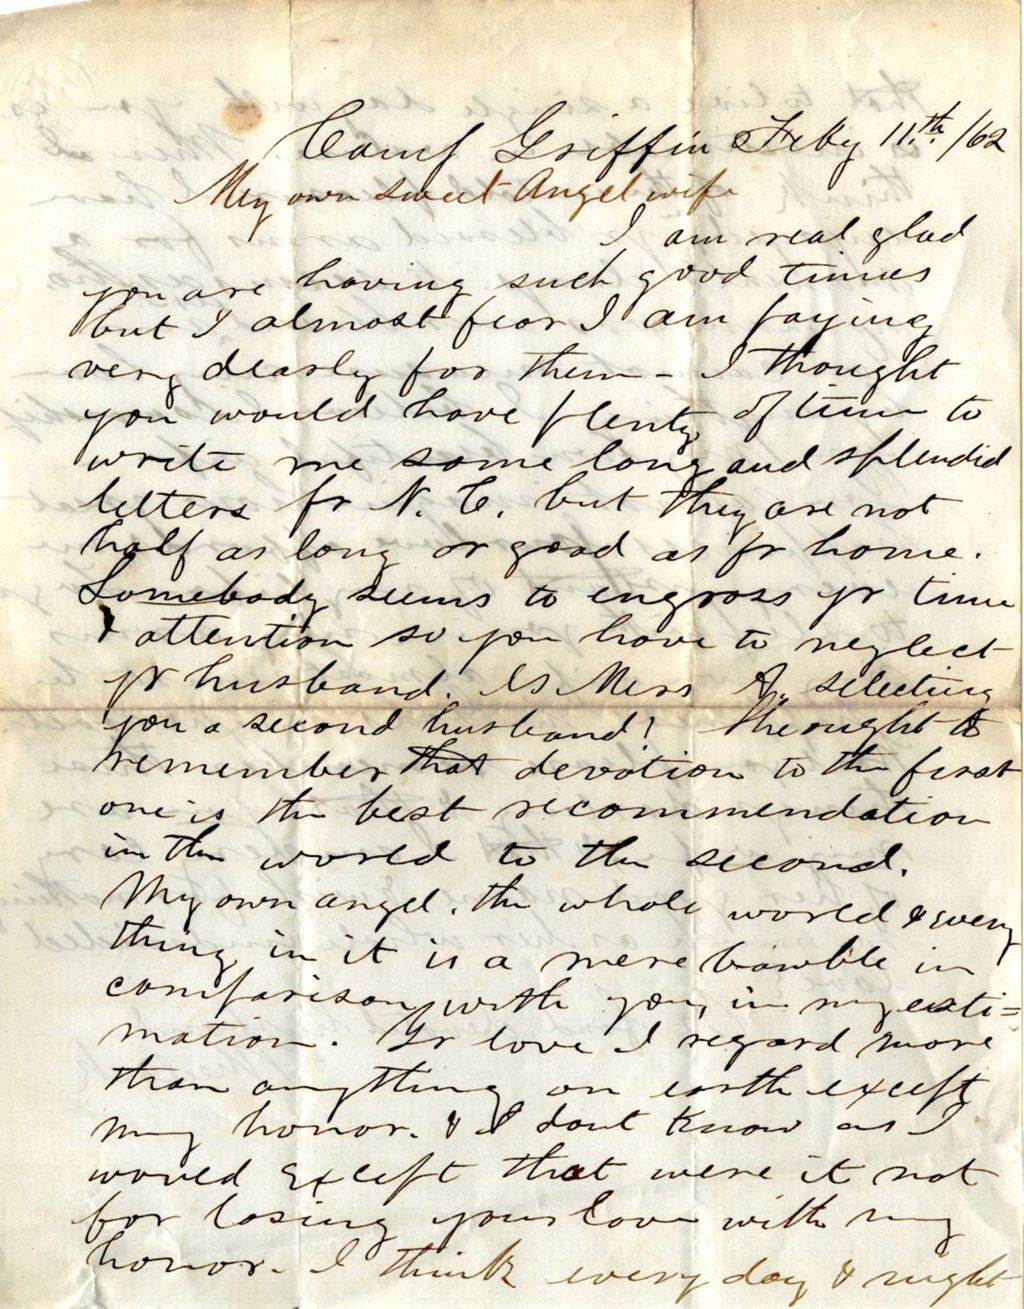 Camp Griffin Feby 11.th /62
My own sweet Angel wife
I am real glad
you are having such good times
but I almost fear I am paying
very dearly for them - I thought
you would have plenty of time to
write me some long and splendid
letters fr N. C. but they are not
half as long or good as fr home.
Somebody seems to engross yr time
& attention so you have to neglect
yr husband. Is Miss A. selecting
you a second husband? She ought to
remember that devotion to the first
one is the best recommendation
in the world to the second.
My own angel. the whole world & every
thing in it is a mere bawble in
comparison with you, in my esti=
mation. Yr love I regard more
than anything on earth except
my honor. & I dont know as I
would except that were it not
for losing your love with my
honor. I think every day & night